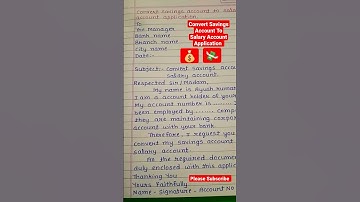 Convert Savings Account to Salary
account application
To
The Manager
Bank name
Branch name
City name
Date:-
Subject:- Convert Savings Account
Salary account.
Respected Sir/Madam,
My name is Ayush Kumar
I am a account holder of your
My account number is
been employed by ........ company
they are maintaining
account with your bank.
Therefore, I request you
Convert my savings account
salary account.
All the required document
duly enclosed with this application
Thanking You
Yours Faithfully
Name - Signature - Account No
Convert Savings
Account To
Salary Account
Application
Please Subscribe